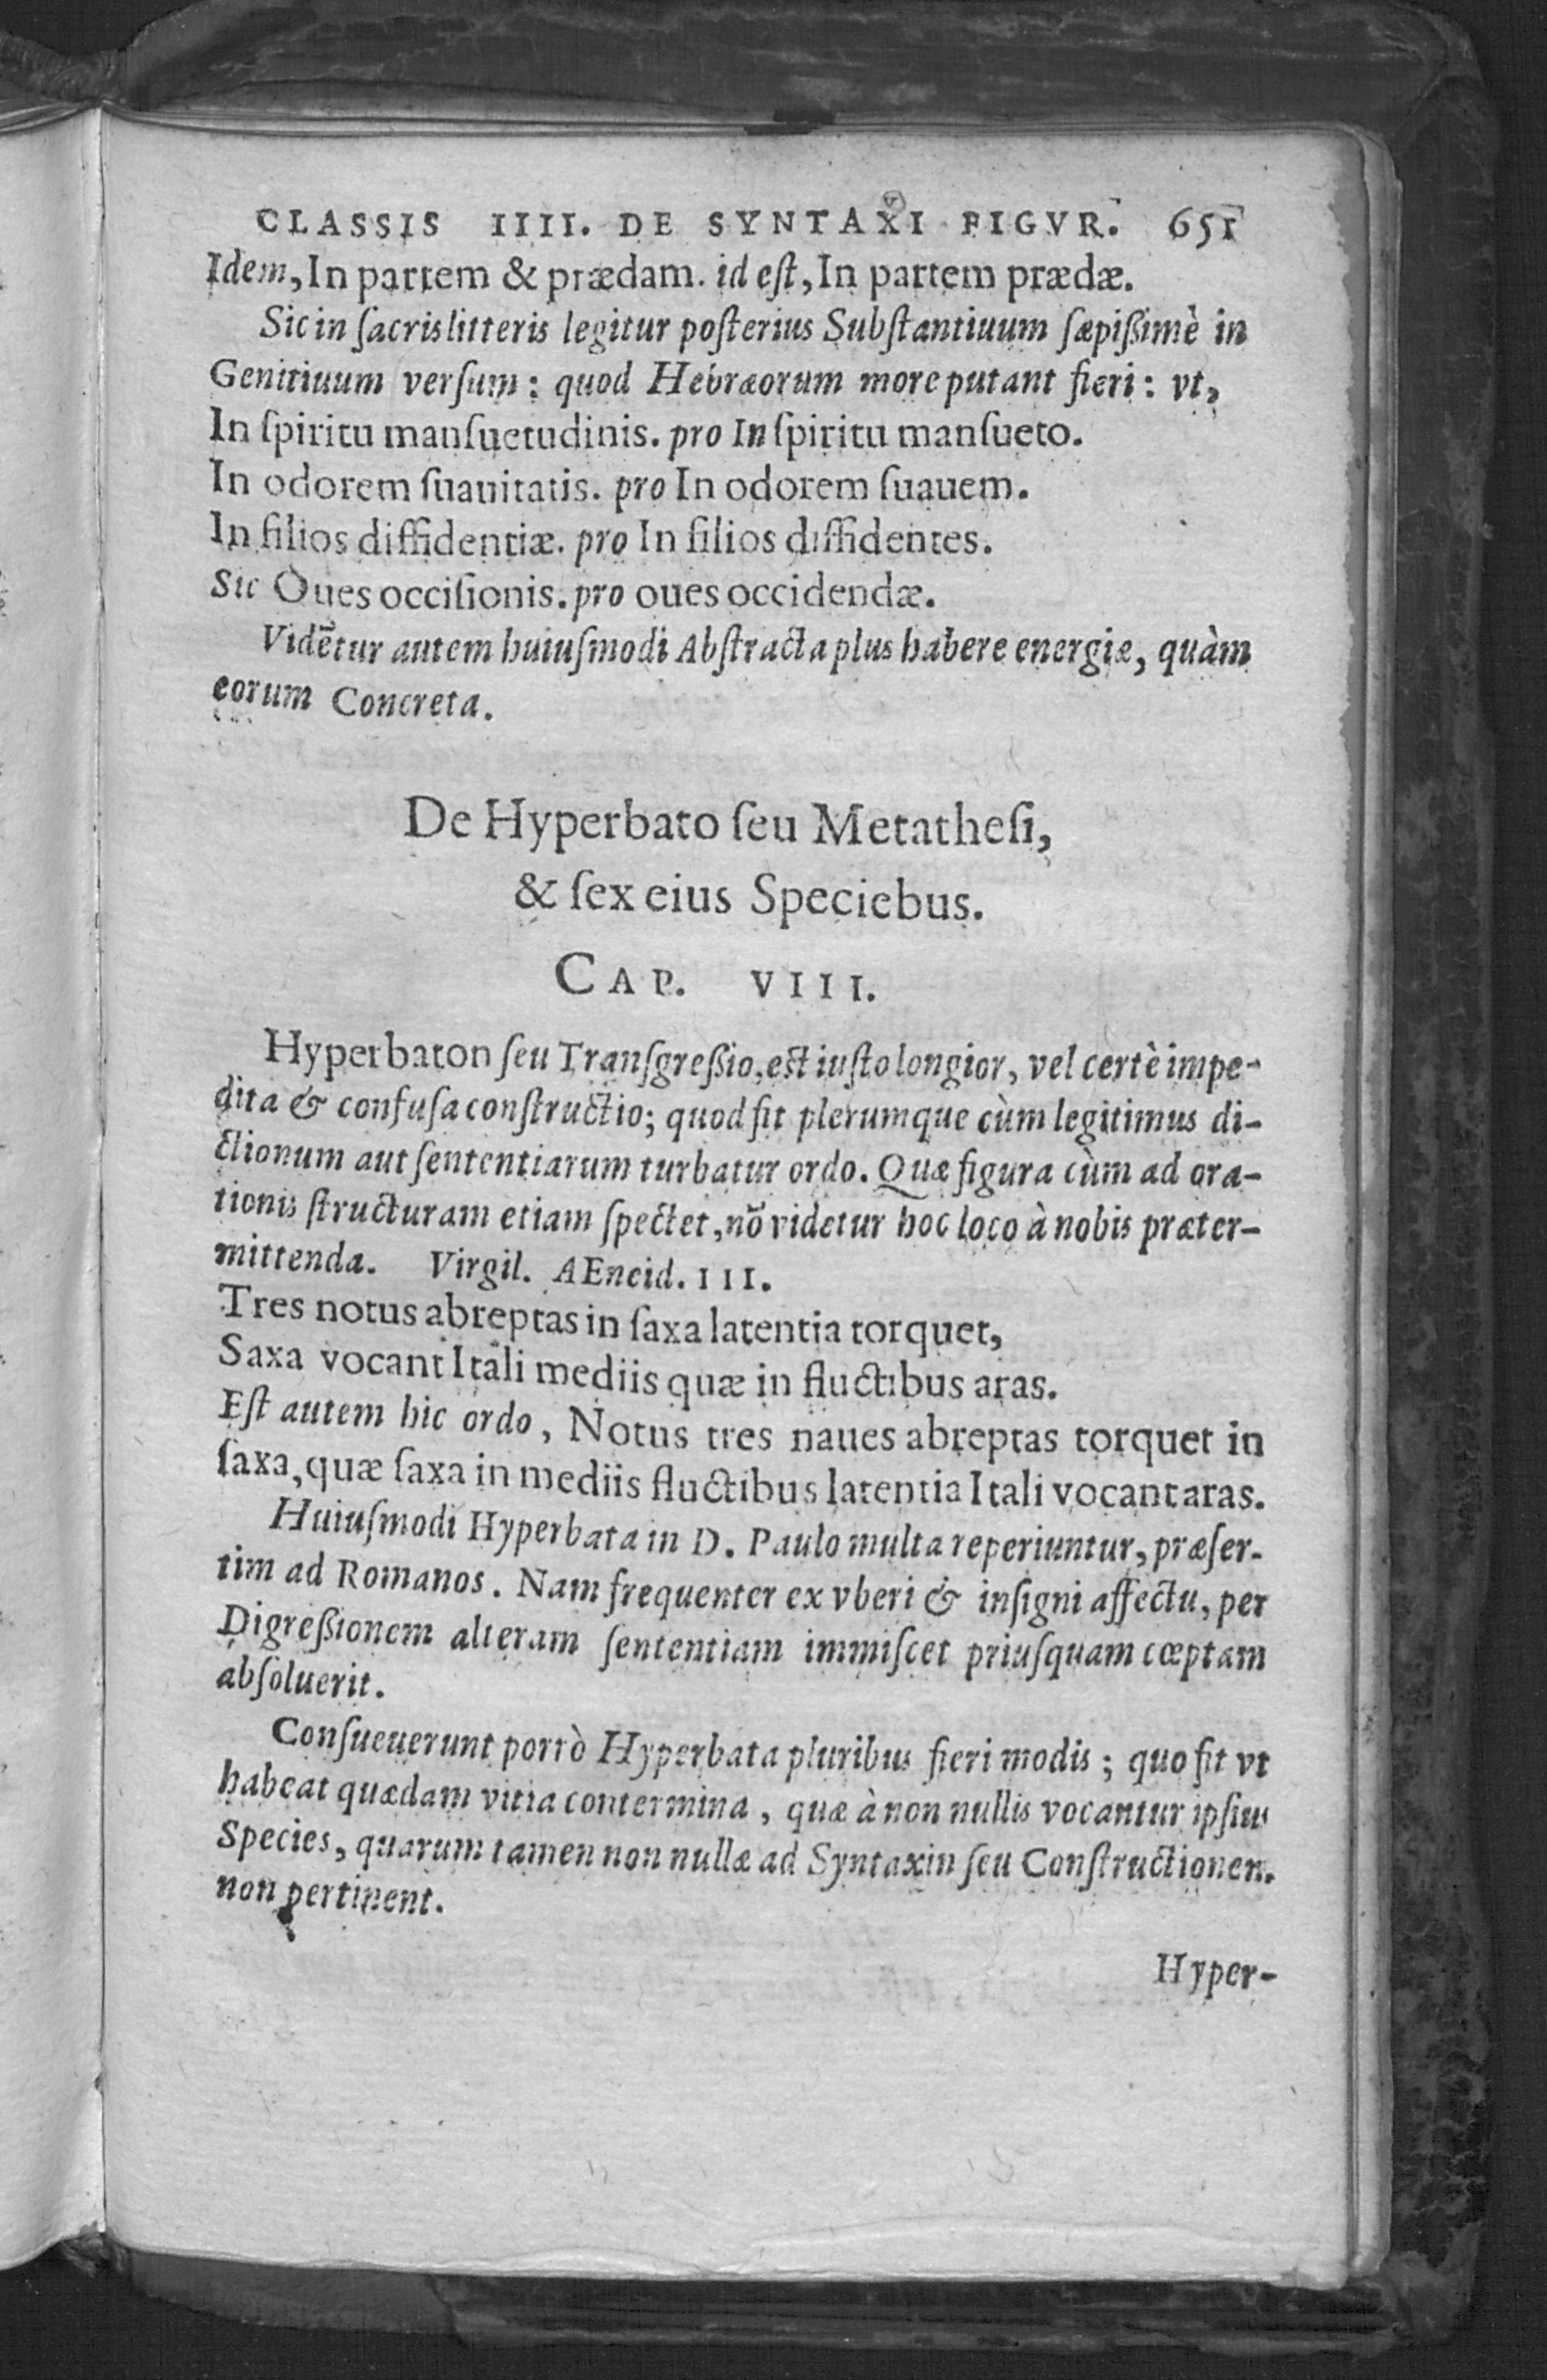 CLASSIS IIII. DE SYNTAXI FIGVR. 651
Idem, In partem & prædam. id eſt, In partem prædæ.
Sic in ſacris litteris legitur poſterius Subſtantiuum ſæpiſſimè in
Genitiuum verſum: quod Hebræorum more putant fieri: vt,
In ſpiritu manſuetudinis. pro In ſpiritu manſueto.
In odorem ſuauitatis. pro In odorem ſuauem.
In filios diffidentiæ. pro In filios diffidentes.
Sic Oues occiſionis. pro oues occidendæ.
Vidētur autem huiuſmodi Abſtracta plus habere energiæ, quàm
eorum Concreta.
De Hyperbato ſeu Metatheſi,
& ſex eius Speciebus.
CAP. VIII.
Hyperbaton ſeu Tranſgreßio, eſt iuſto longior, vel certè impe-
dita & confuſa conſtructio; quod fit plerumque cùm legitimus di-
ctionum aut ſententiarum turbatur ordo. Quæ figura cùm ad ora-
tionis ſtructuram etiam ſpectet, nō videtur hoc loco à nobis præter-
mittenda. Virgil. AEneid. III.
Tres notus abreptas in ſaxa latentia torquet,
Saxa vocant Itali mediis quæ in fluctibus aras.
Eſt autem hic ordo, Notus tres naues abreptas torquet in
ſaxa, quæ ſaxa in mediis fluctibus latentia Itali vocant aras.
Huiuſmodi Hyperbata in D. Paulo multa reperiuntur, præſer-
tim ad Romanos. Nam frequenter ex vberi & inſigni affectu, per
Digreßionem alteram ſententiam immiſcet priuſquam cœptam
abſoluerit.
Conſueuerunt porrò Hyperbata pluribus fieri modis; quo fit vt
habeat quædam vitia contermina, quæ à non nullis vocantur ipſius
Species, quarum tamen non nullæ ad Syntaxin ſeu Conſtructionem
non pertinent.
Hyper-